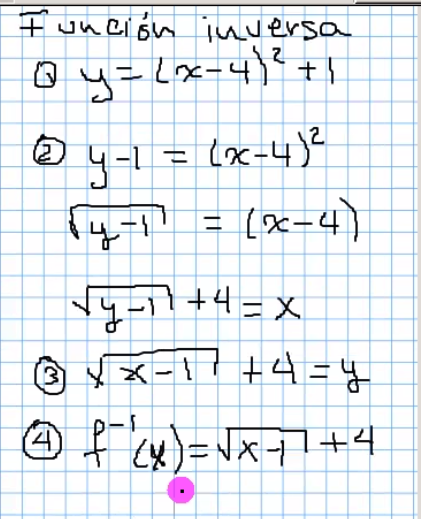 Función inversa
① y = (x-4)² + 1
② y-1 = (x-4)²
√(y-1) = (x-4)
√(y-1) + 4 = x
③ √(x-1) + 4 = y
④ f⁻¹(x) = √(x-1) + 4